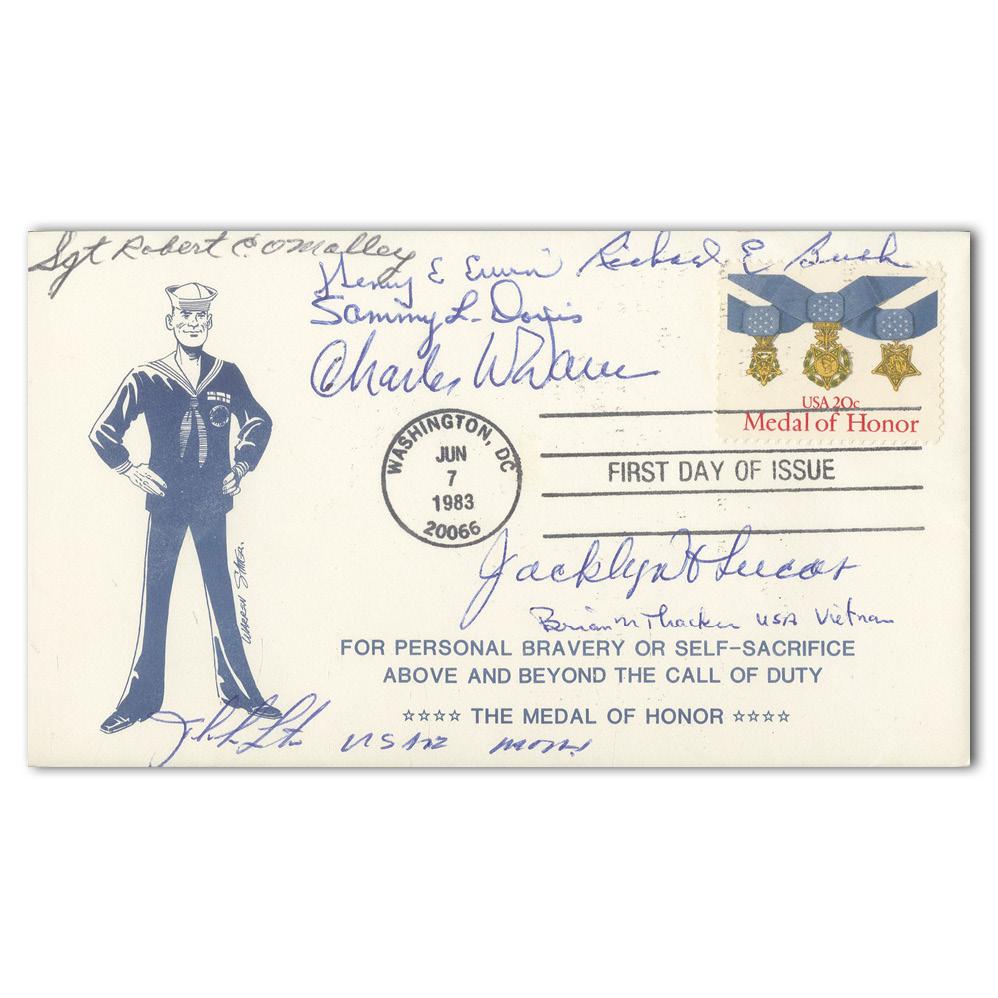 Sgt Robert E. O'Malley
Henry E Erwin
Richard E Bush
Sammy L. Davis
Charles W Dean
USA 20c
Medal of Honor
WASHINGTON, DC
JUN
7
1983
20066
FIRST DAY OF ISSUE
Jacklyn H Lucas
Brian M Thacker USA Vietnam
WARREN
FOR PERSONAL BRAVERY OR SELF-SACRIFICE
ABOVE AND BEYOND THE CALL OF DUTY
☆☆☆☆ THE MEDAL OF HONOR ☆☆☆☆